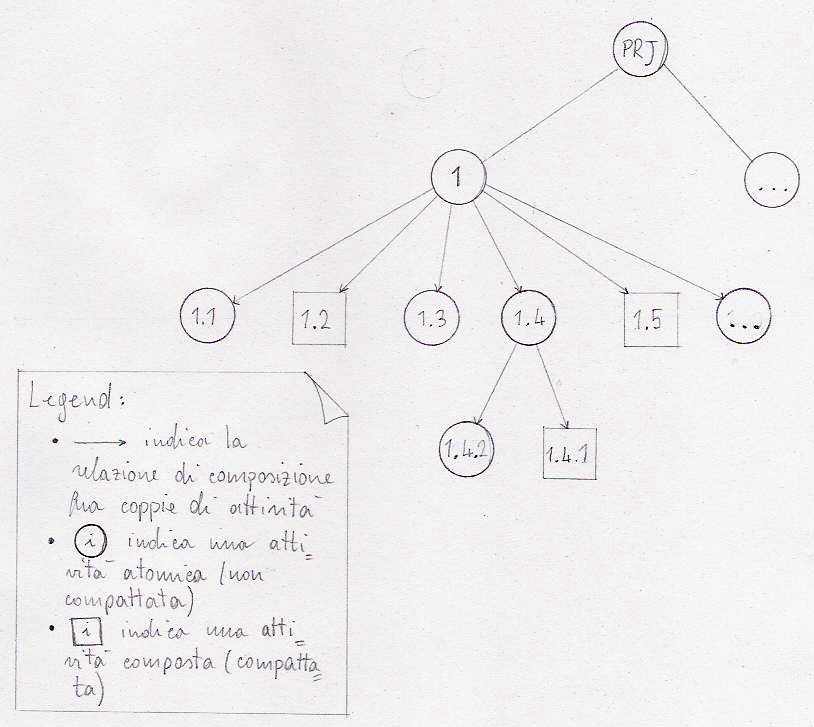 PRJ
1
...
1.1
1.2
1.3
1.4
1.5
...
1.4.2
1.4.1
Legend:
• → indica la
relazione di composizione
fra coppie di attività
• i indica una atti=
vità atomica (non
compattata)
• i indica una atti=
vità composta (compatta=
ta)